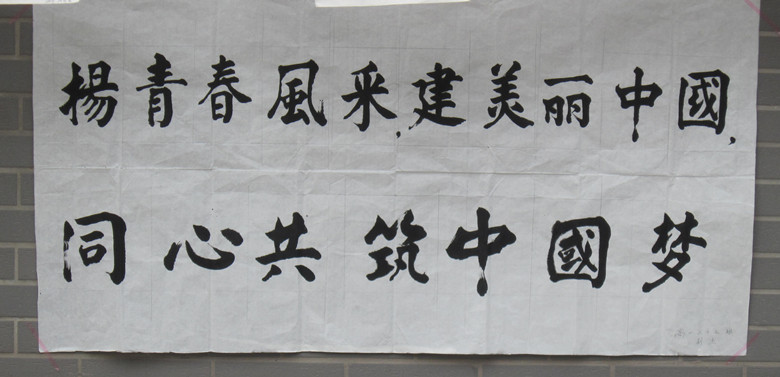 楊青春風采,建美丽中國,
同心共筑中國梦